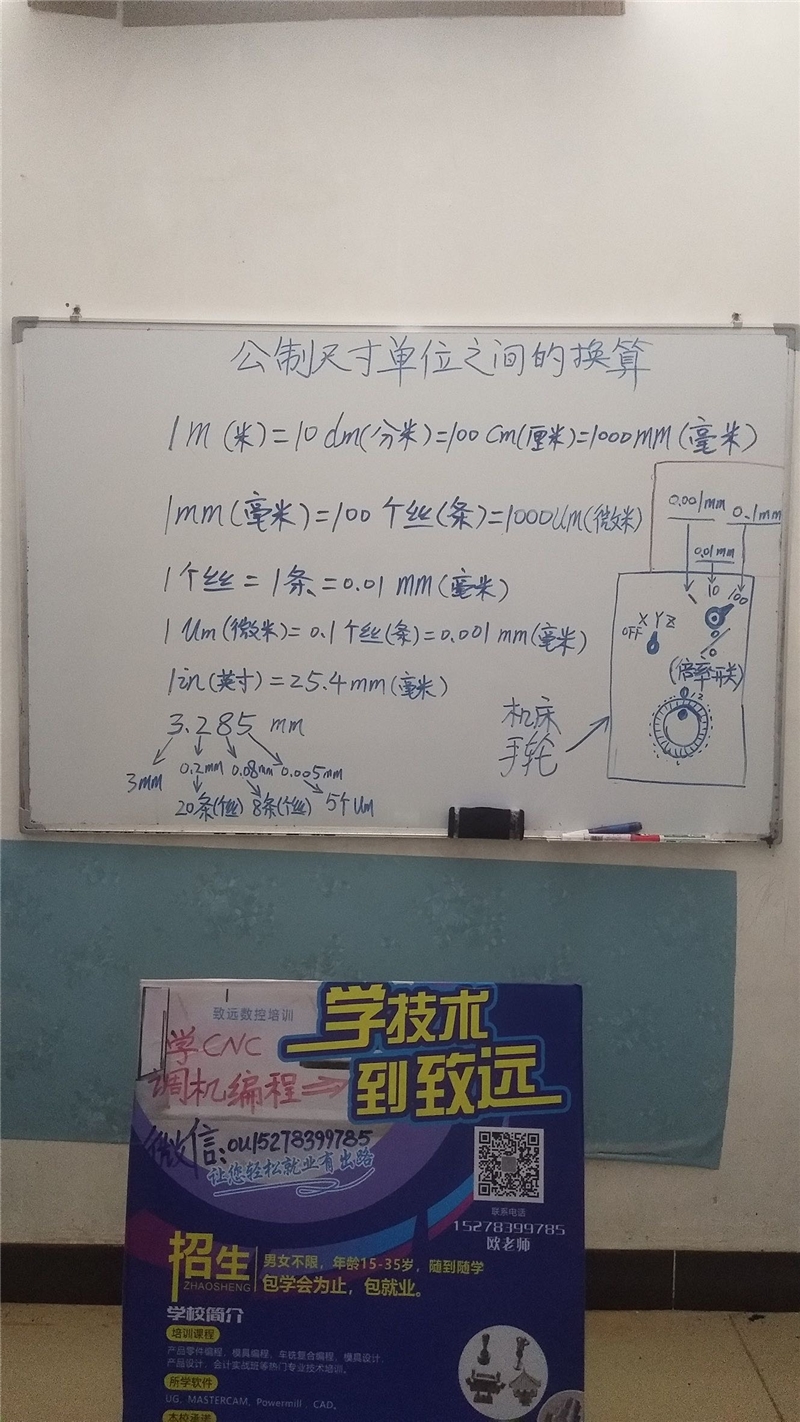 公制尺寸单位之间的换算
1m(米)=10dm(分米)=100Cm(厘米)=1000mm(毫米)
1mm(毫米)=100个丝(条)=1000Um(微米)
1个丝=1条=0.01mm(毫米)
1Um(微米)=0.1个丝(条)=0.001mm(毫米)
1in(英寸)=25.4mm(毫米)
3.285mm
3mm 0.2mm 0.08mm 0.005mm
20条(个丝) 8条(个丝) 5个Um
机床
手轮
0.001mm 0.1mm
0.01mm
1 10 100
X Y Z
OFF
(倍率开关)
致远数控培训
学技术
到致远
学CNC
调机编程⇒
微信:OU15278399785
让您轻松就业有出路
联系电话
15278399785
欧老师
招生
ZHAOSHENG
男女不限,年龄15-35岁,随到随学
包学会为止,包就业。
学校简介
培训课程
产品零件编程、模具编程、车铣复合编程、模具设计、
产品设计、会计实战班等热门专业技术培训。
所学软件
UG、MASTERCAM、Powermill、CAD。
本校承诺